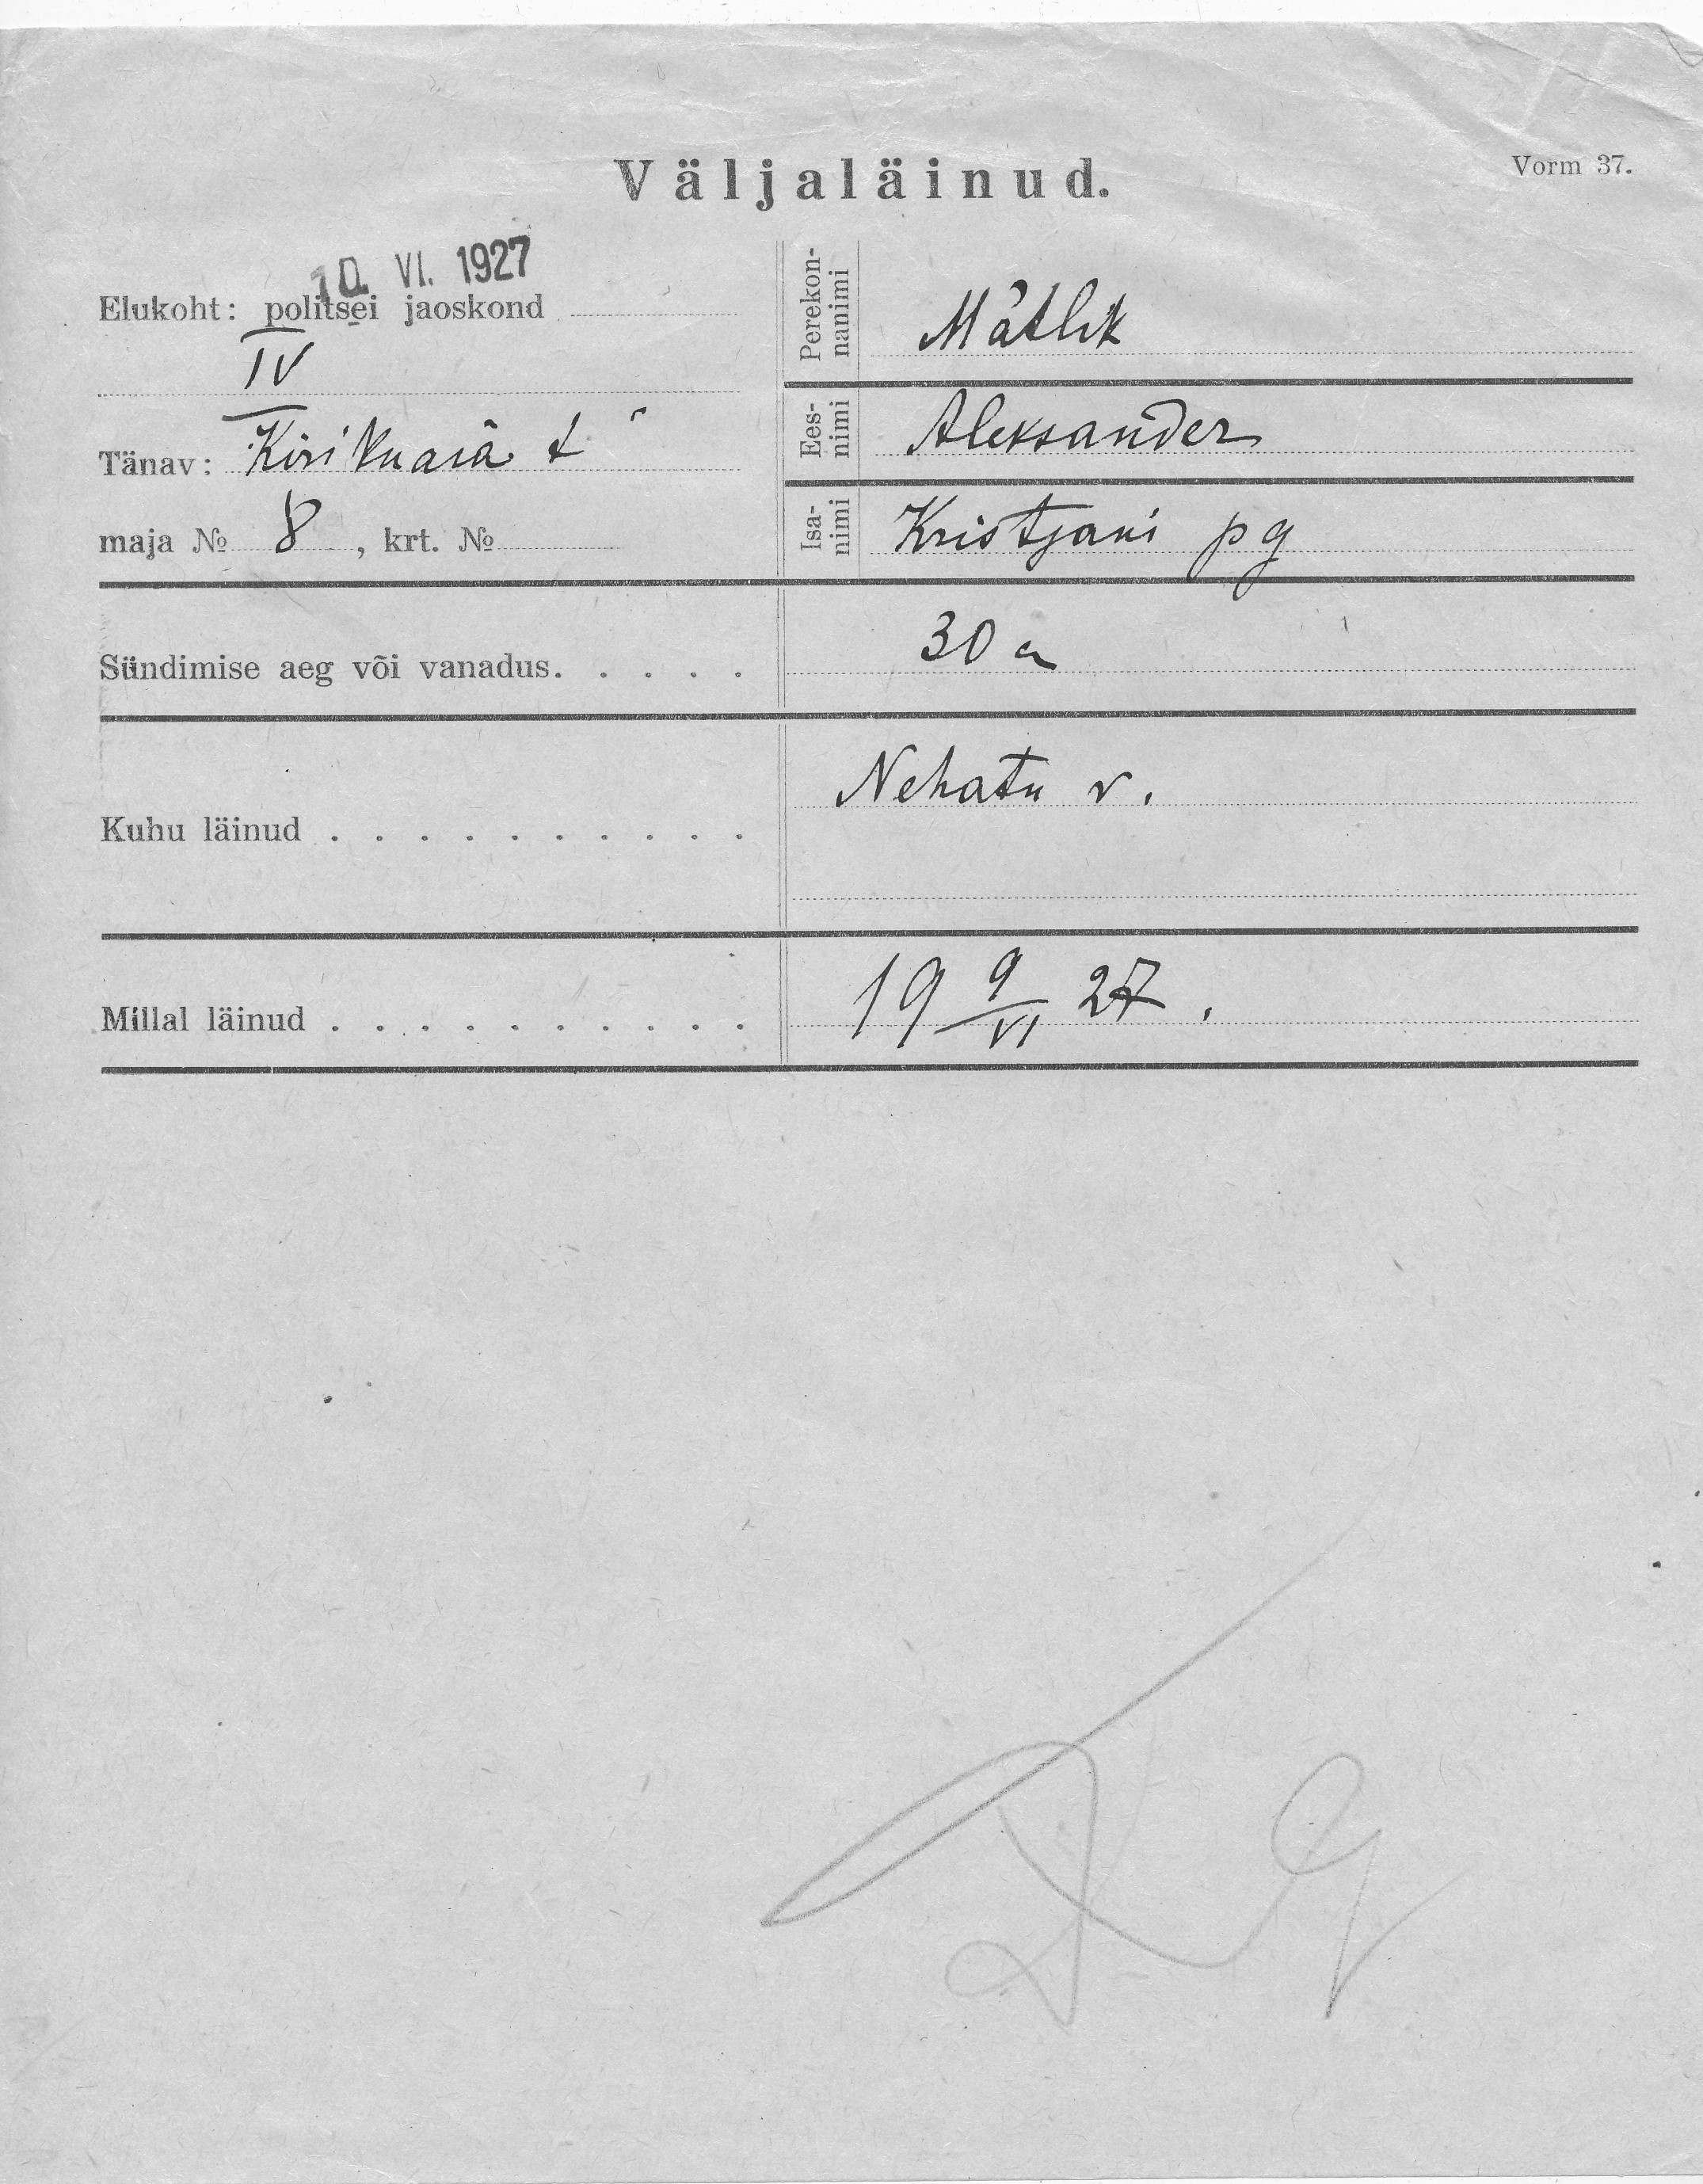 Väljaläinud.
Vorm 37.
10. VI. 1927
Elukoht: politsei jaoskond
IV
Tänav: Kirikuaia t
maja № 8, krt. №
Perekon-
nanimi
Mätlik
Ees-
nimi
Aleksander
Isa-
nimi
Kristjani pg
Sündimise aeg või vanadus. . . . .
30 a
Kuhu läinud . . . . . . . . . .
Nehatu v.
Millal läinud . . . . . . . . . .
19 9/VI 27.